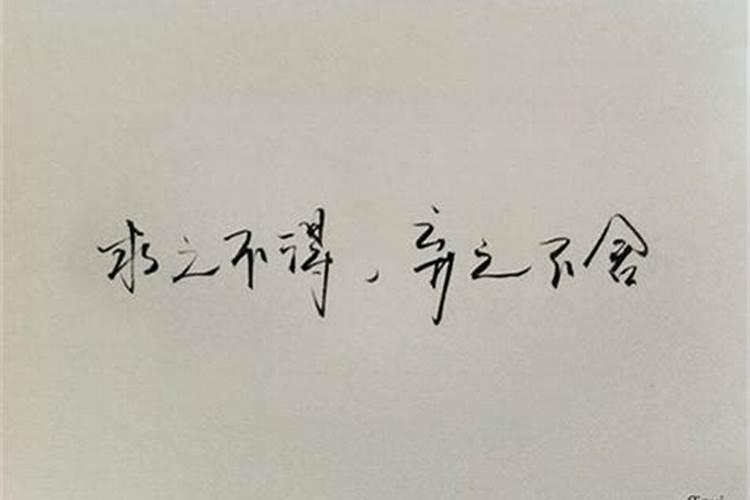 求之不得，弃之不舍